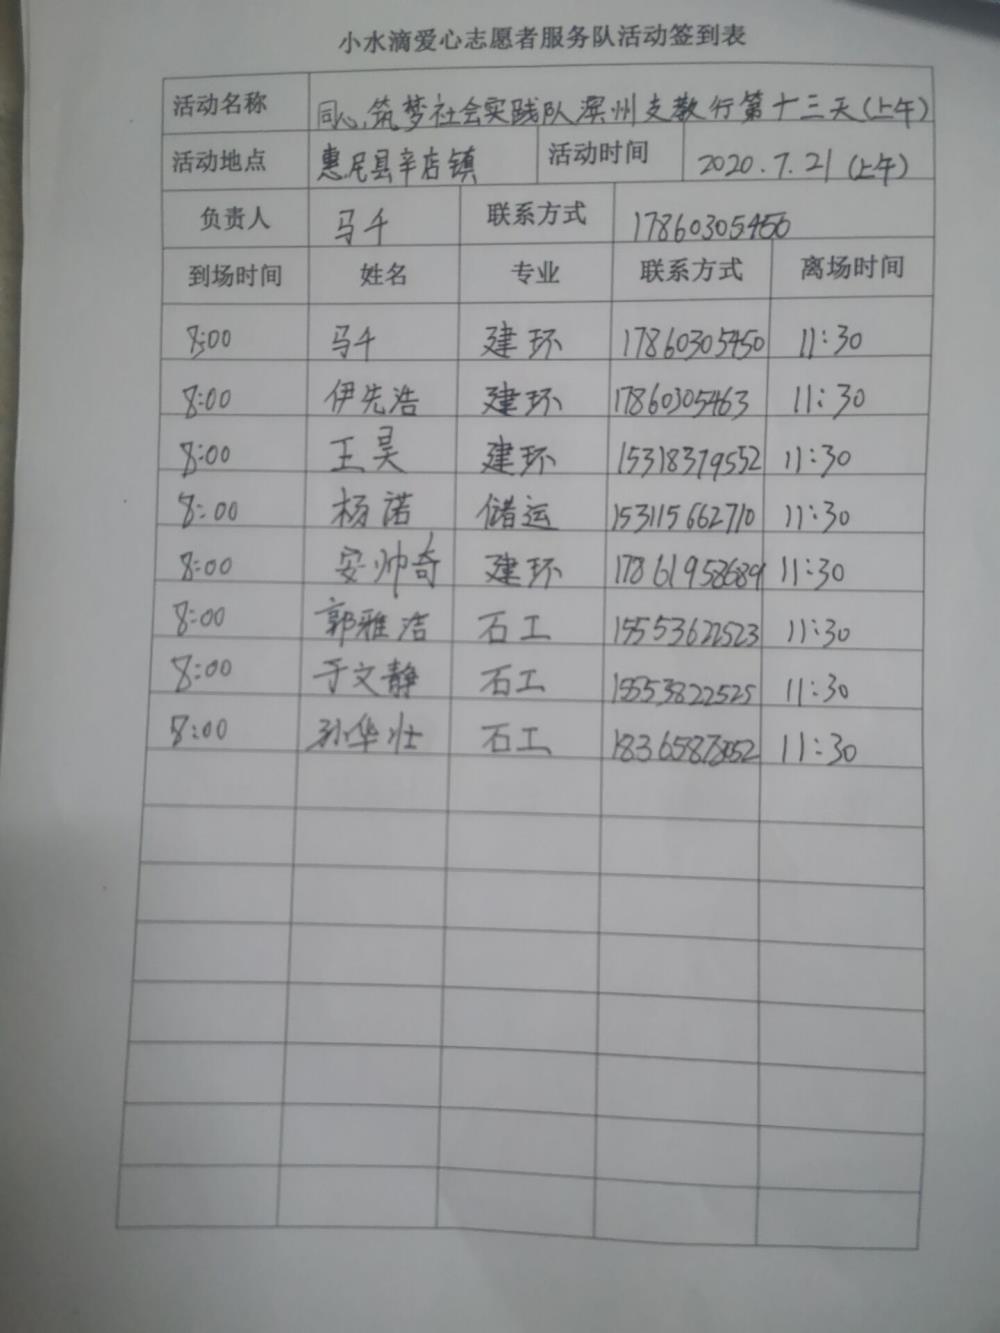 小水滴爱心志愿者服务队活动签到表
活动名称 同心筑梦社会实践队滨州支教行第十三天(上午)
活动地点 惠民县辛店镇 活动时间 2020.7.21(上午)
负责人 马千 联系方式 17860305450
到场时间 姓名 专业 联系方式 离场时间
8:00 马千 建环 17860305450 11:30
8:00 伊先浩 建环 17860305463 11:30
8:00 王昊 建环 15318379552 11:30
8:00 杨诺 储运 153115662710 11:30
8:00 安帅奇 建环 17861958689 11:30
8:00 郭雅洁 石工 15553622523 11:30
8:00 于文静 石工 15553822525 11:30
8:00 孙华壮 石工 18365878052 11:30